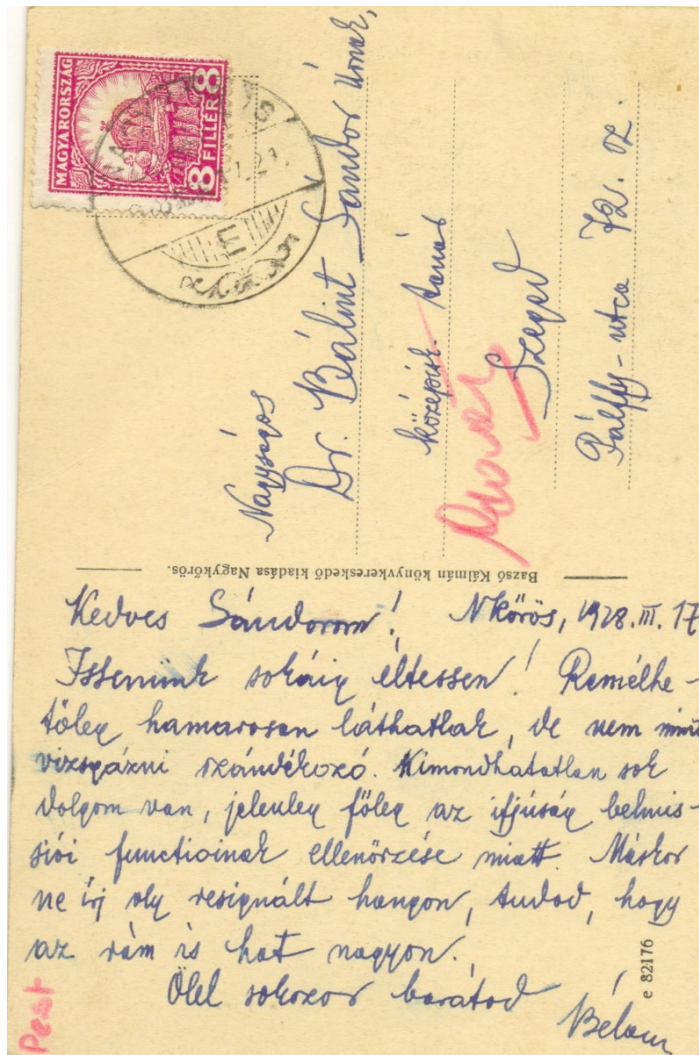 MAGYARORSZÁG
8 FILLÉR 8
Nagyságos
Dr. Bálint Sándor úrnak,
középisk. tanár
Szeged
Pálffy-utca 72. sz.
Bazsó Kálmán könyvkereskedő kiadása Nagykőrös.
Kedves Sándorom! NKőrös, 1928. III. 17
Istenünk sokáig éltessen! Remélhe-
tőleg hamarosan láthatlak, de nem mint
vizsgázni szándékozó. Kimondhatatlan sok
dolgom van, jelenleg főleg az ifjúság belmis-
siói functioinak ellenőrzése miatt. Máskor
ne írj oly resignált hangon, tudod, hogy
az rám is hat nagyon.
Ölel sokszor barátod
Bélam
e 82176
Pest